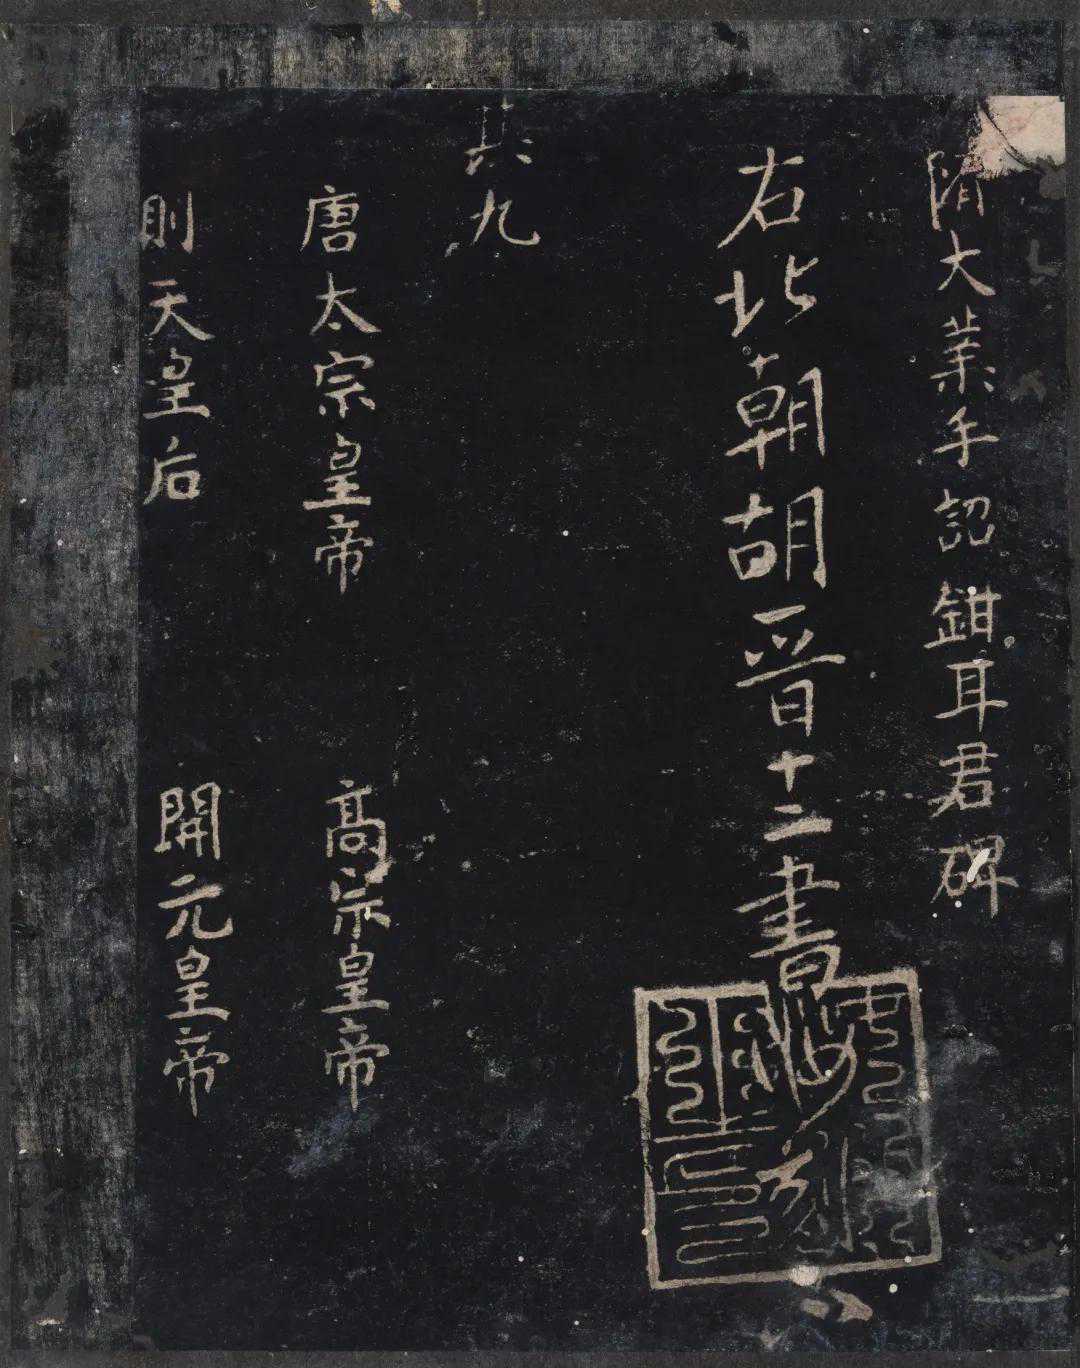 隋大業手詔鉗耳君碑
右北朝胡晋十二書刻
其九
唐太宗皇帝　高宗皇帝
則天皇后　開元皇帝